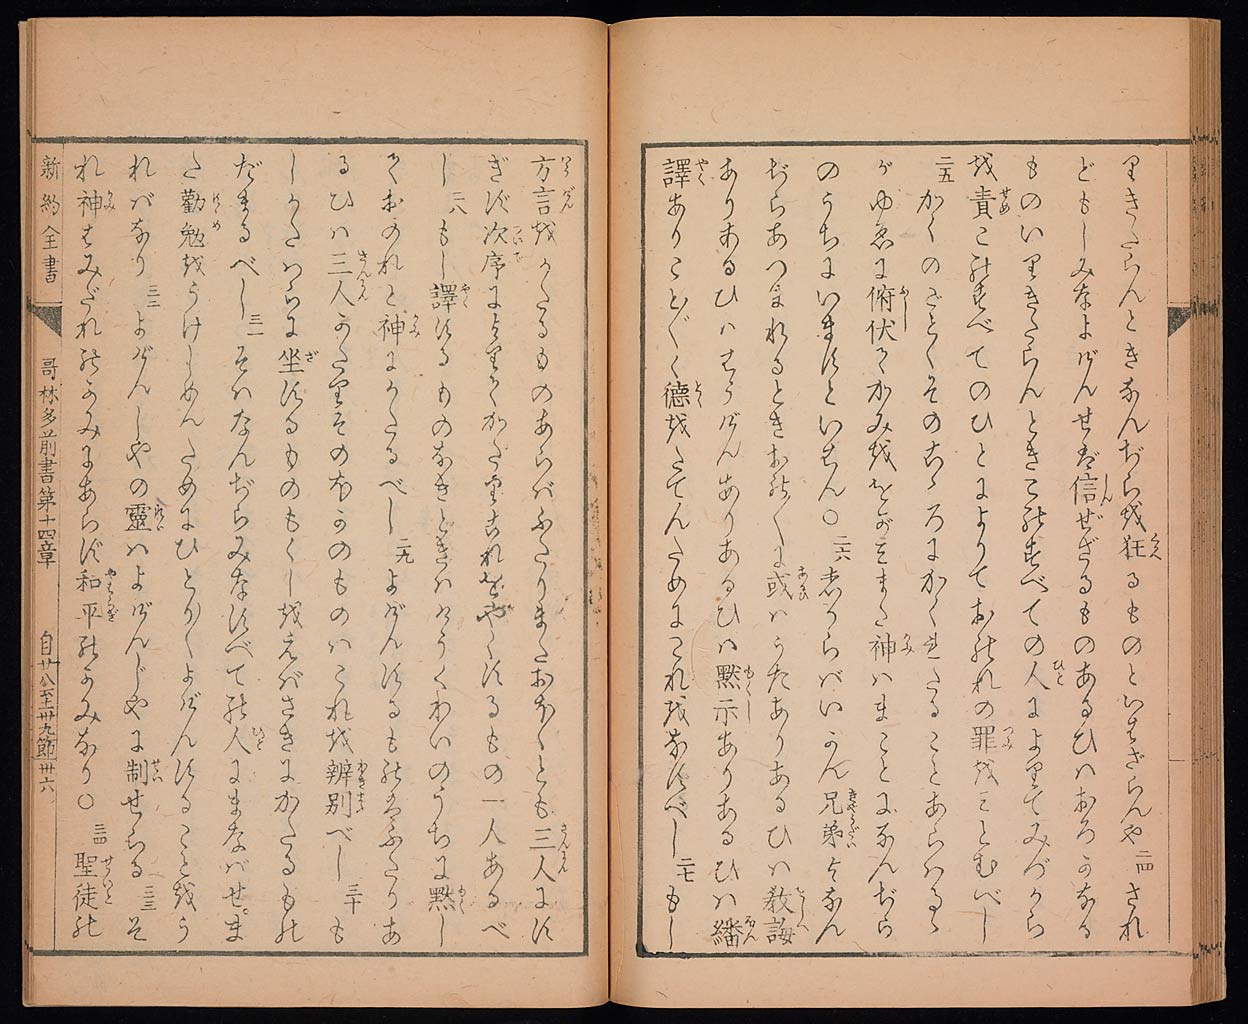 りきたらんときなんぢらを狂るものといはざらんや 二四 され
どもしみなよげんせば信ぜざるものあるひハおろかなる
ものいりきたらんときこのすべての人によりてみづから
を責このすべてのひとによりておのれの罪をみとむべし
二五 かくのごとくそのこゝろにかくれたることあらハるゝ
がゆゑに俯伏てかみを をがみまた神ハまことになんぢら
のうちにいますといはん〇 二六 しからバいかん兄弟よなん
ぢらあつまれるときおの〳〵或ハうたありあるひハ教誨
ありあるひハはうげんありあるひハ黙示ありあるひハ繙
譯ありこと〴〵く徳をたてんためにこれをなすべし 二七 もし
方言をかたるものあらバふたりまたおほくとも三人にす
ぎず次序によりてかたりこれをやくするもの一人あるべ
し 二八 もし譯するものなきときハけうくわいのうちに黙し
ておのれと神にかたるべし 二九 よげんするものハふたりあ
るひハ三人かたりそのほかのものハこれを辨別べし 三十 も
しかたハらに坐するものもくしをえバさきにかたるもの
だまるべし 三一 そハなんぢらみなすべての人にまなバせま
た勸勉をうけしめんためにひとり〳〵よげんすることをう
れバなり 三二 よげんしやの靈ハよげんじやに制せらる 三三 そ
れ神ハみだれのかみにあらず和平のかみなり〇 三四 聖徒の
新約全書 哥林多前書第十四章 自廿八至卅九節 卅六